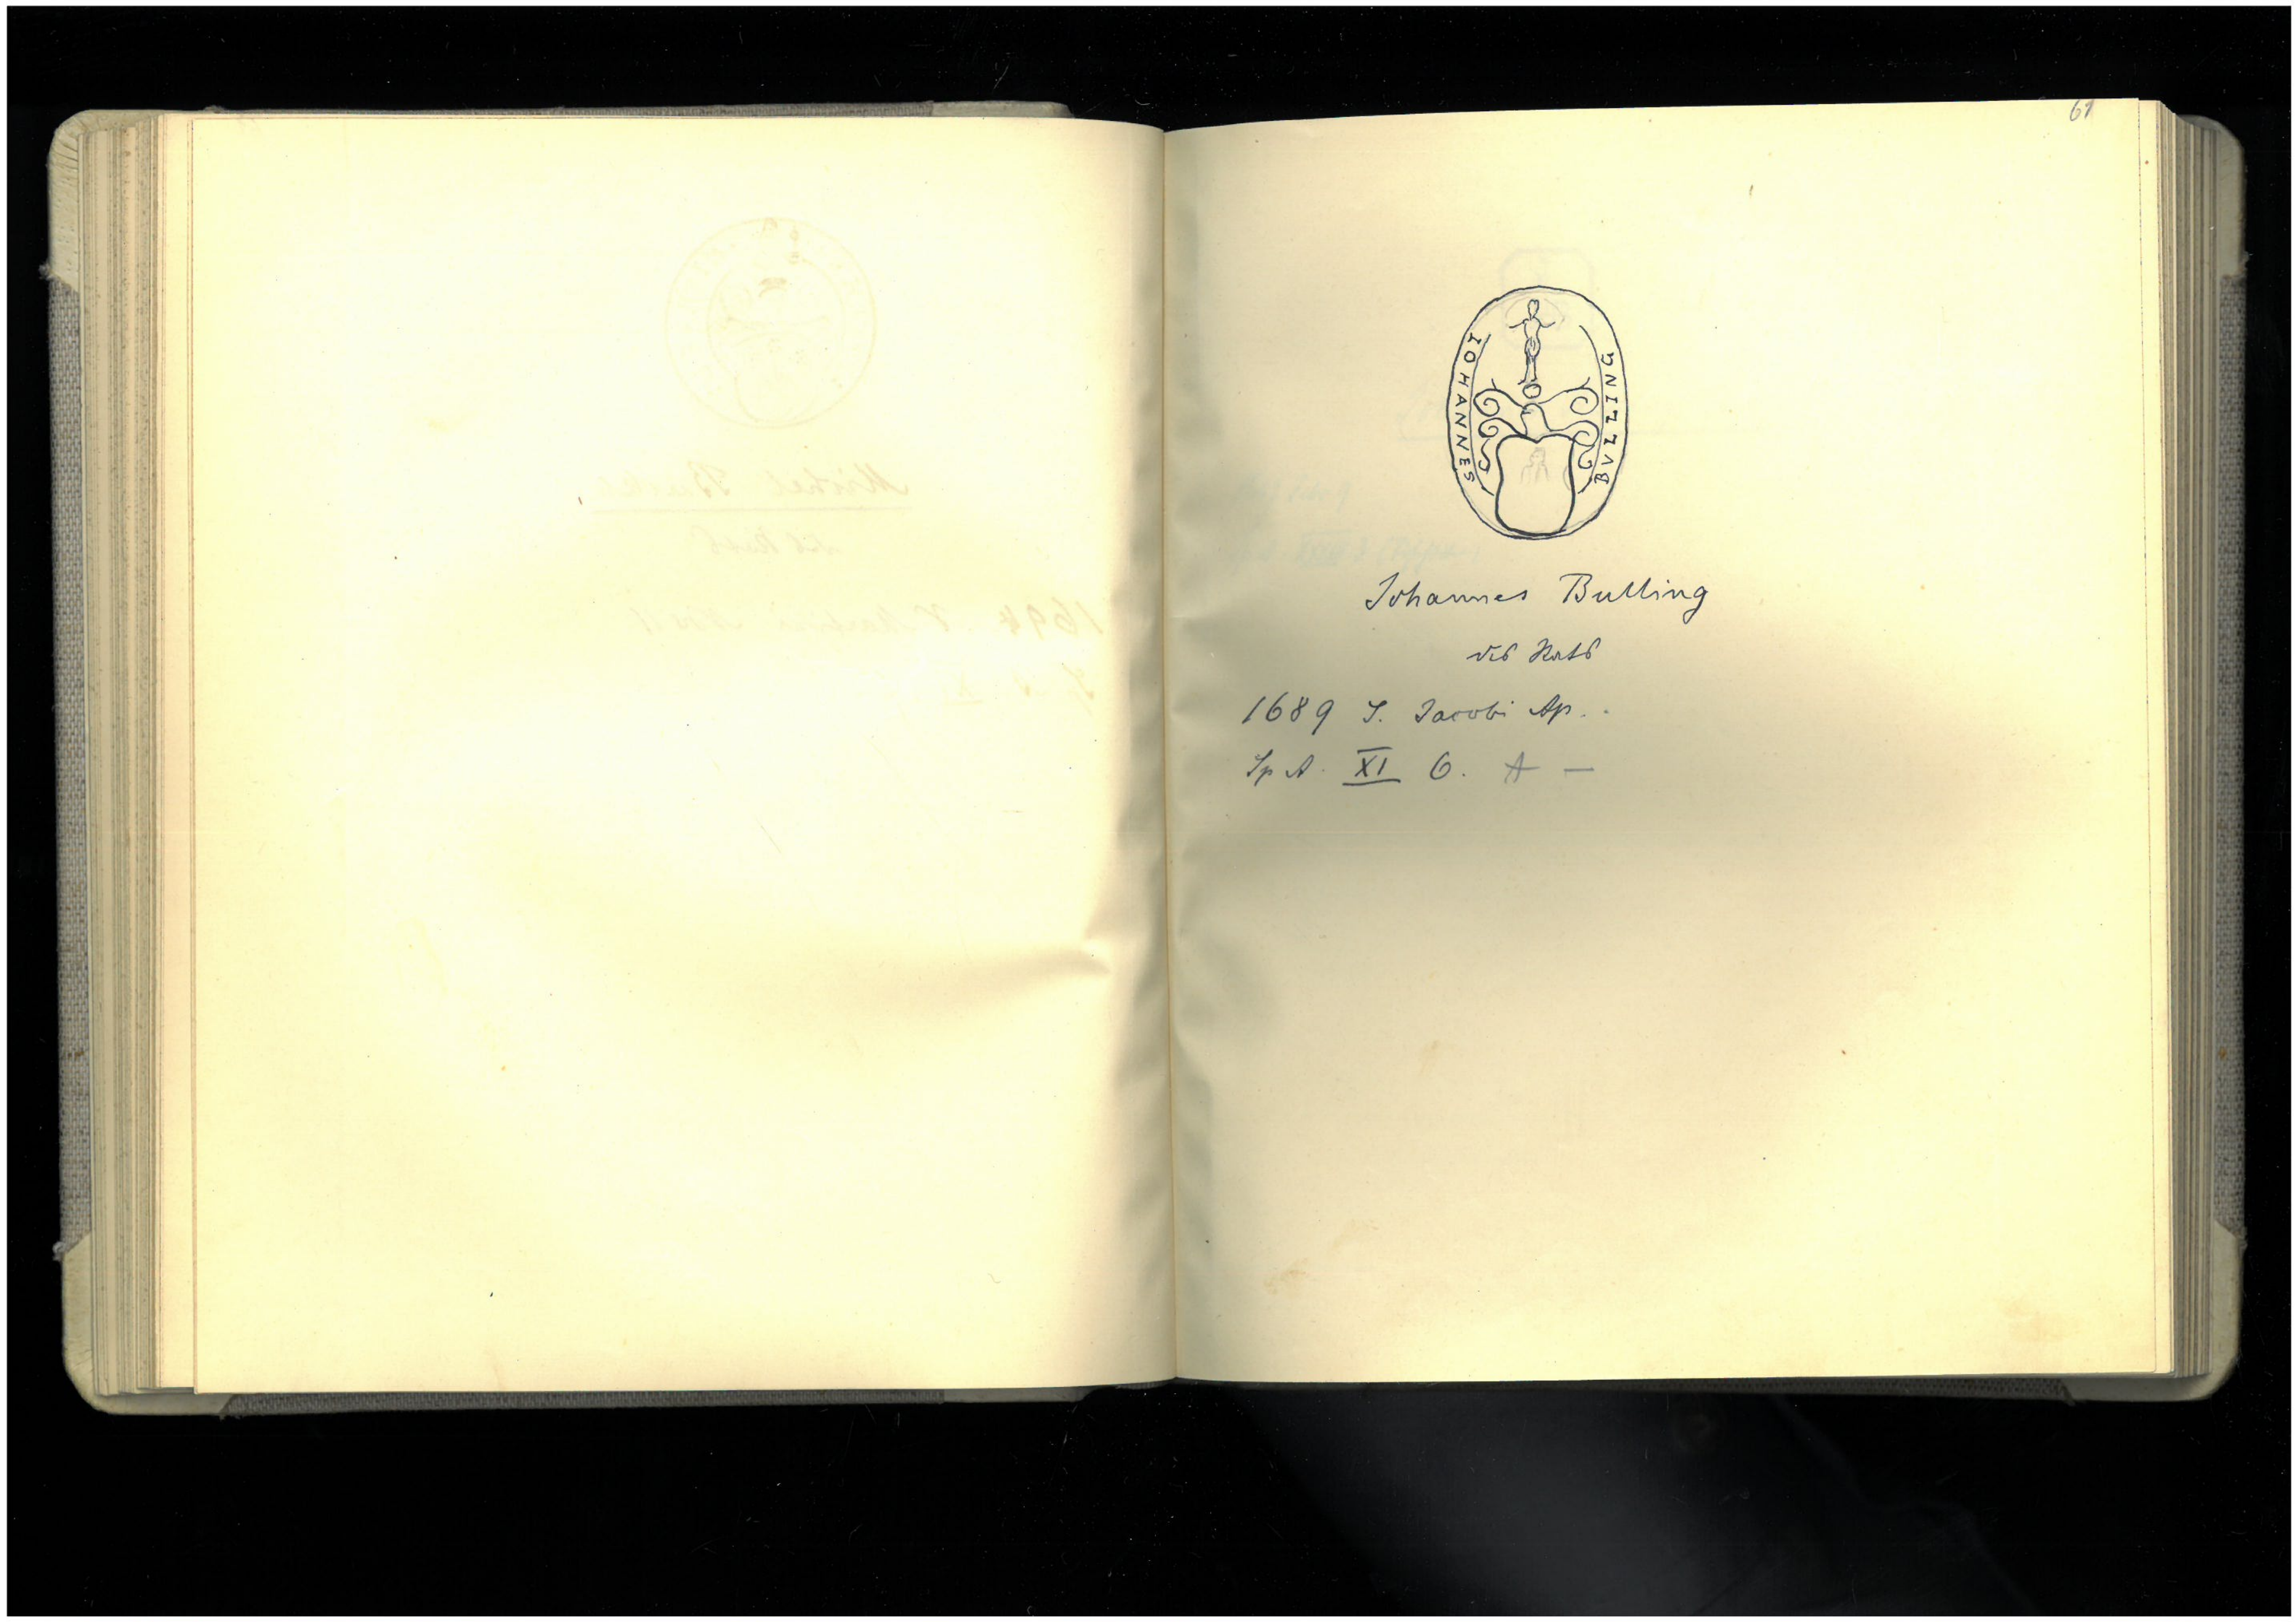 61
IOHANNES BVLLING
Johannes Bulling
des Rats
1689 S. Jacobi Ap.
Sp A. XI 6. A —